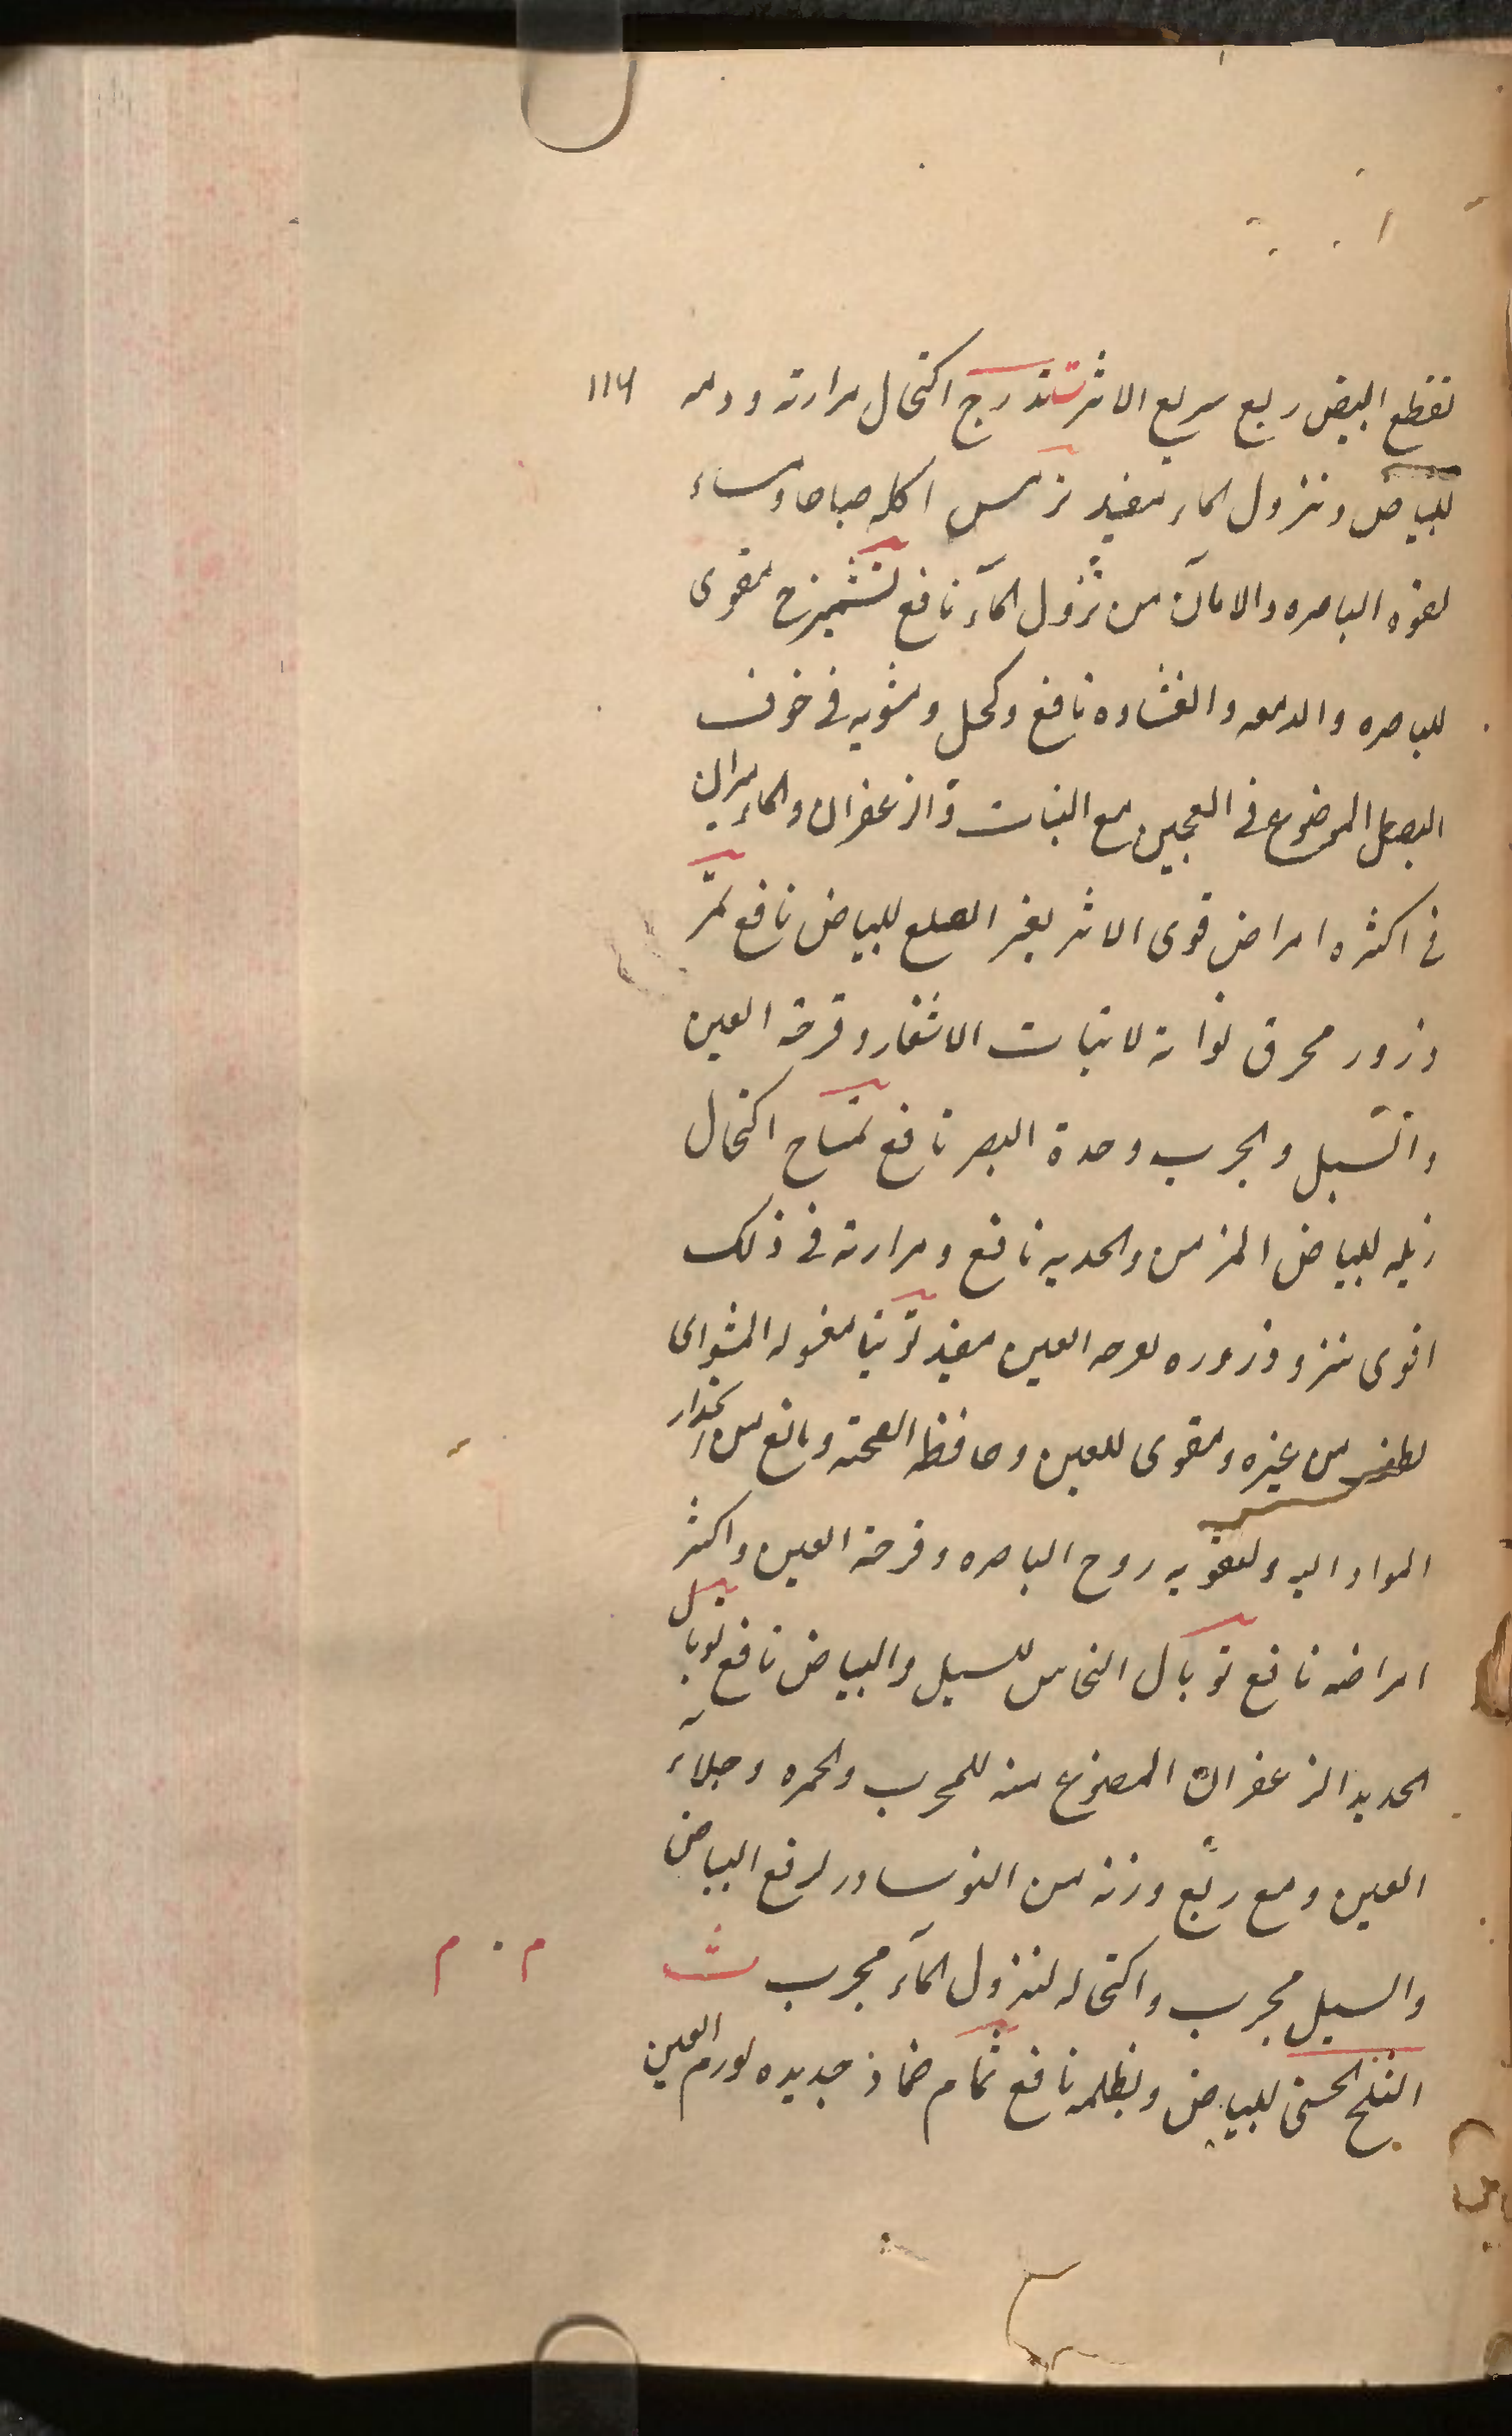 تقطع البيض ربع سريع الاثر تندرج اكتحال مرارته ودمه ١١٦
للبياض ونزول الماء مفيد ترمس اكله صباحا ومساء
لقوة الباصره والامان من نزول المآء نافع تشميزج مقوى
للباصره والدمعه والغشاوه نافع وكحل مشويه فى جوف
البصل الموضوع فى العجين مع النبات والزعفران والماميران
فى اكثره امراض قوى الاثر بغر الضلع للبياض نافع تمر
ذرور محرق نواته لانبات الاشفار وقرحة العين
والسبل والجرب وحدة البصر نافع تمساح اكتحال
زبله للبياض المزمن والحديه نافع ومرارته فى ذلك
اقوى وذروره لقرحه العين مفيد توتيا مغسوله
الطف من غيره ومقوى للعين وحافظه الصحته ومانع من انحدار
المواد اليه ولتقويه روح الباصره وقرحة العين واكثر
امراضه نافع توبال النحاس للسبل والبياض نافع توبال
الحديد الزعفران المصنوع منه للجرب والحمره وجلاء
العين ومع ربع وزنه من النوسادر لرفع البياض
والسبل مجرب واكتحاله لنزول المآء مجرب ث
الثلج للبياض نافع ثمام ضماد جديده لورم العين